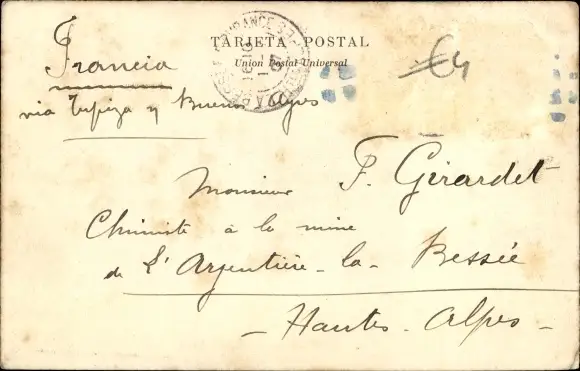 TARJETA POSTAL
Union Postal Universal
€4
Francia
via Tupiza y Buenos Ayres
Monsieur F. Girardet
Chimiste à la mine
de L'Argentière-la-Bessée
- Hautes-Alpes -